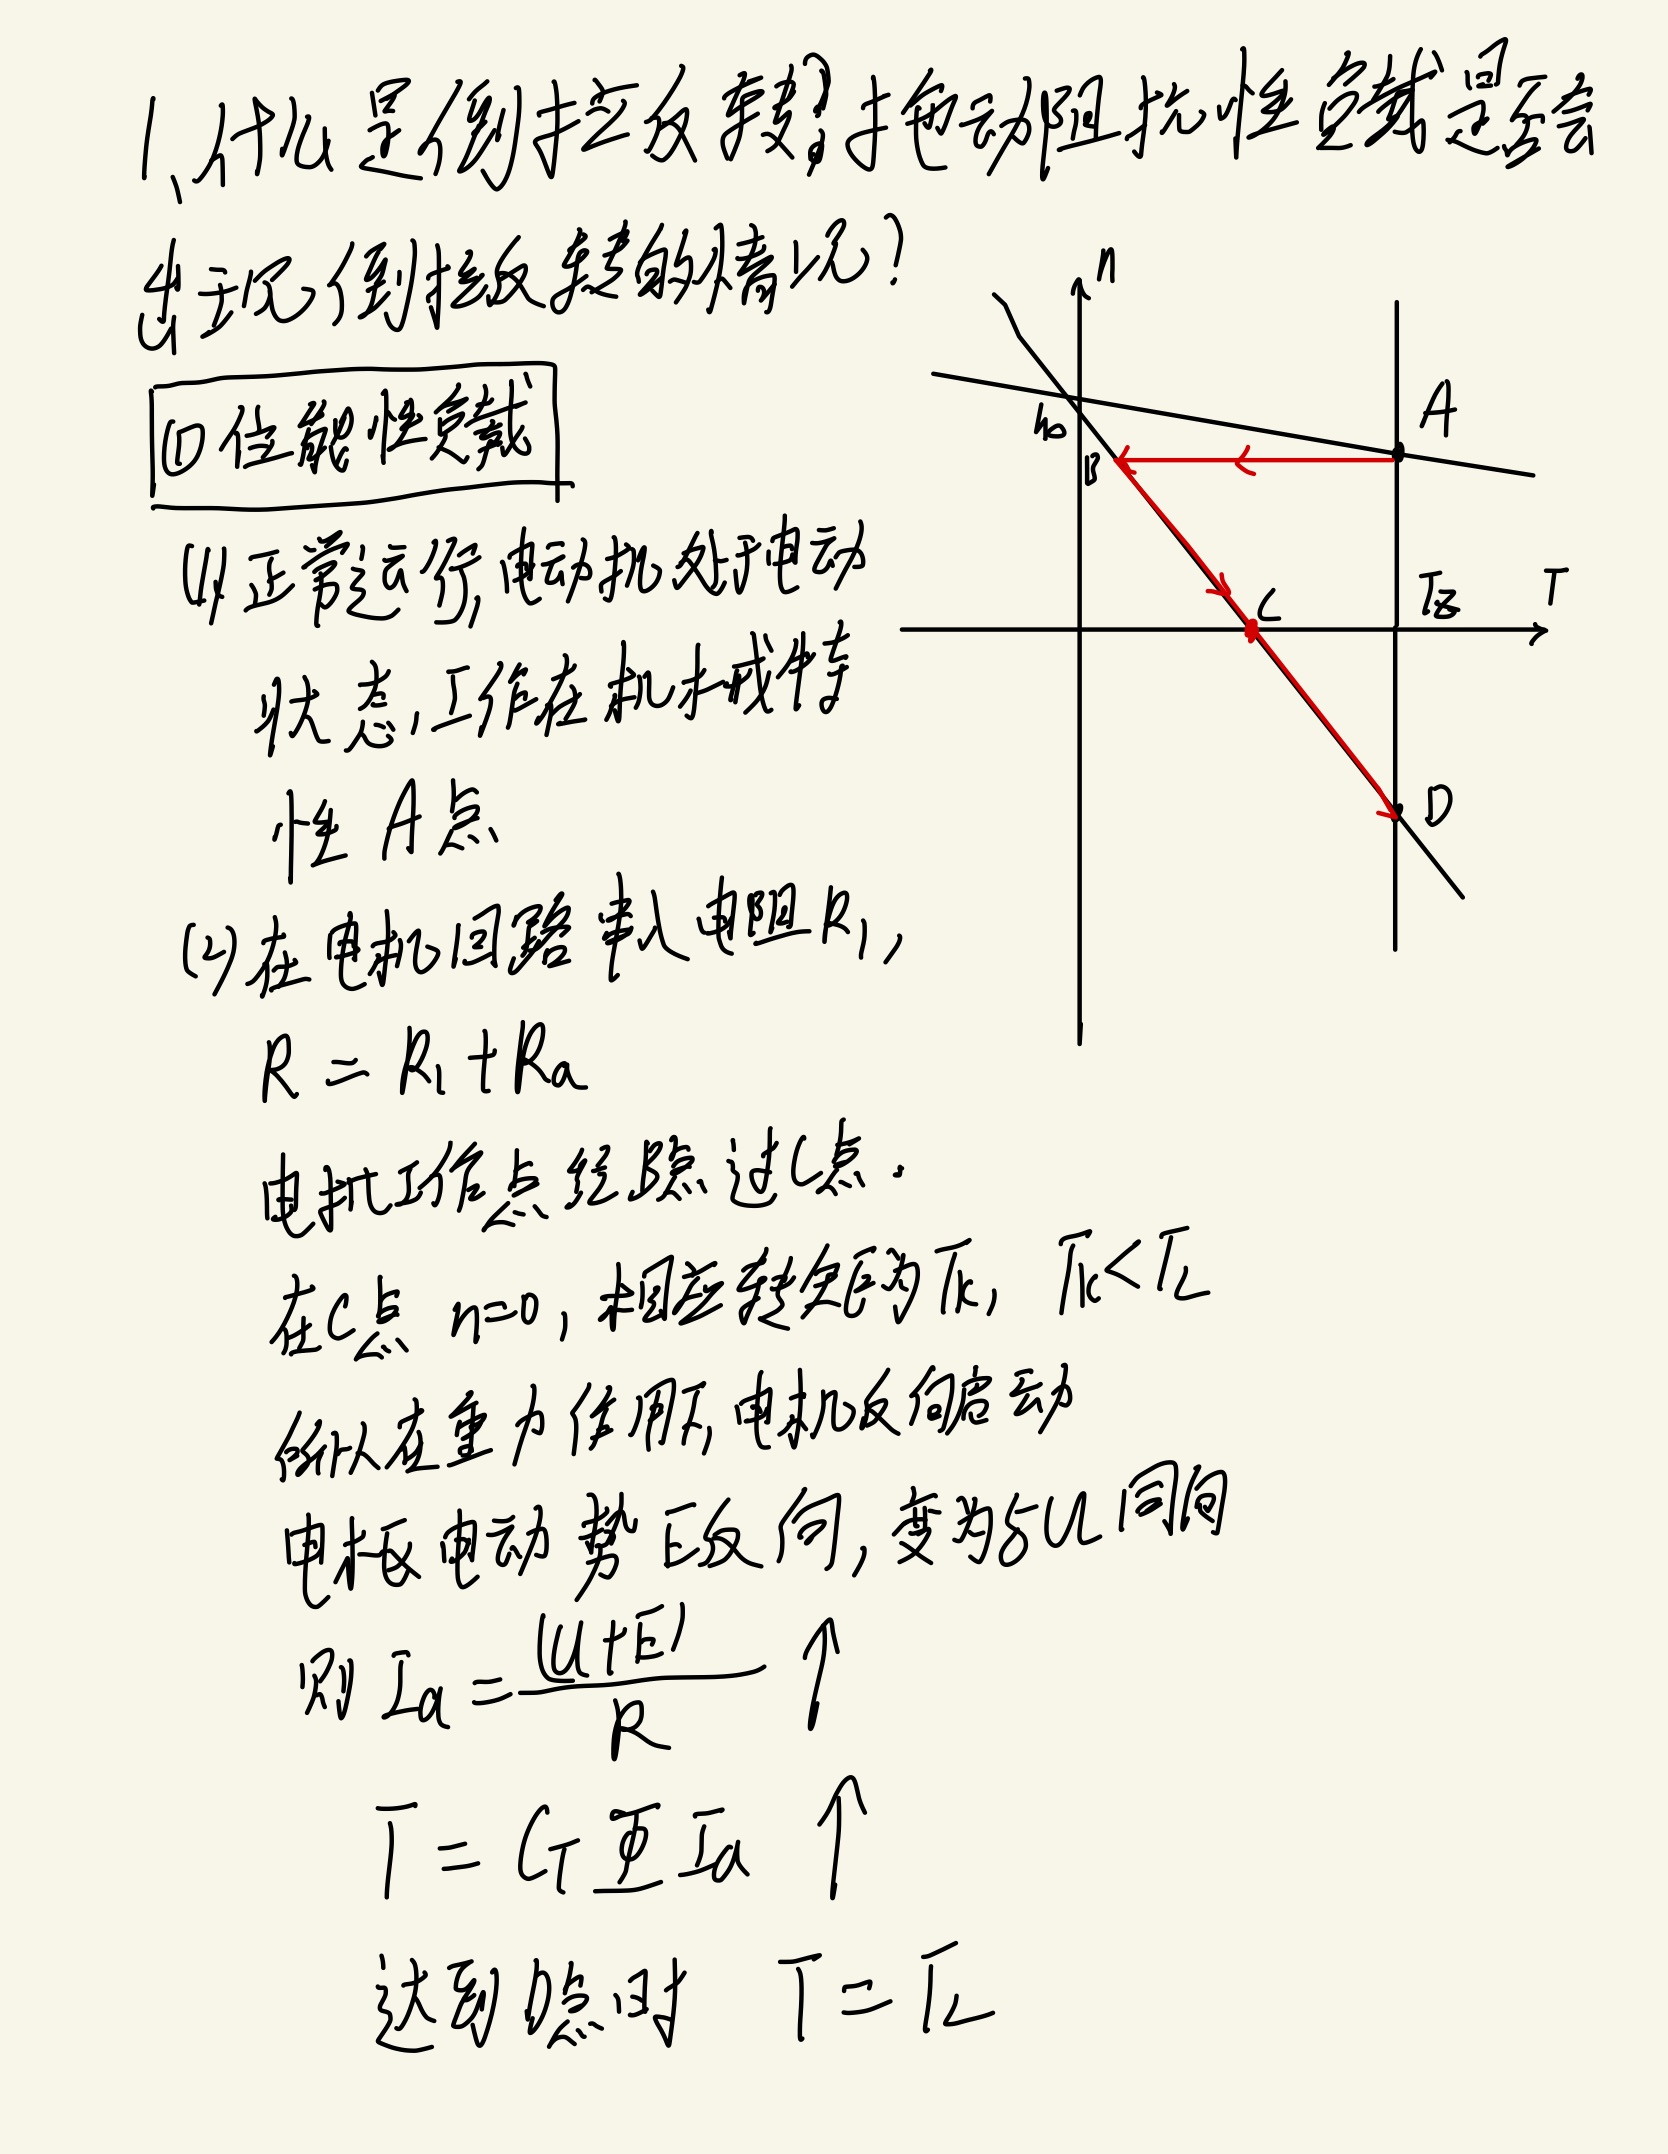 1、什么是倒拉反转？拖动阻抗性负载是否会
出现倒拉反转的情况？
①位能性负载
(1)正常运行,电动机处于电动
状态,工作在机械特
性A点
(2)在电机回路串入电阻R1,
R = R1 + Ra
电机工作点经B点过C点.
在C点 n=0,相应转矩为Tk, Tk<TL
所以在重力作用下,电机反向启动
电枢电动势E反向,变为与U同向
则 Ia = (U+E)/R ↑
T = CTΦIa ↑
达到D点时 T = TL
n
A
n0
B
C
Tz
T
D